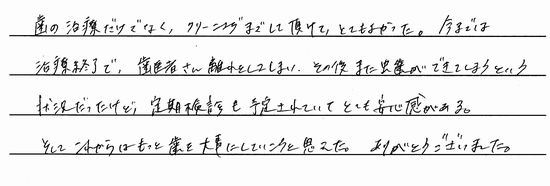 歯の治療だけでなく、クリーニングまでして頂けて、とてもよかった。今までは
治療終了で、歯医者さん離れをしてしまい、その後また虫歯ができてしまうという
状況だったけど、定期検診も予定されていてとても安心感がある。
そしてこれからはもっと歯を大事にしていこうと思えた。ありがとうございました。